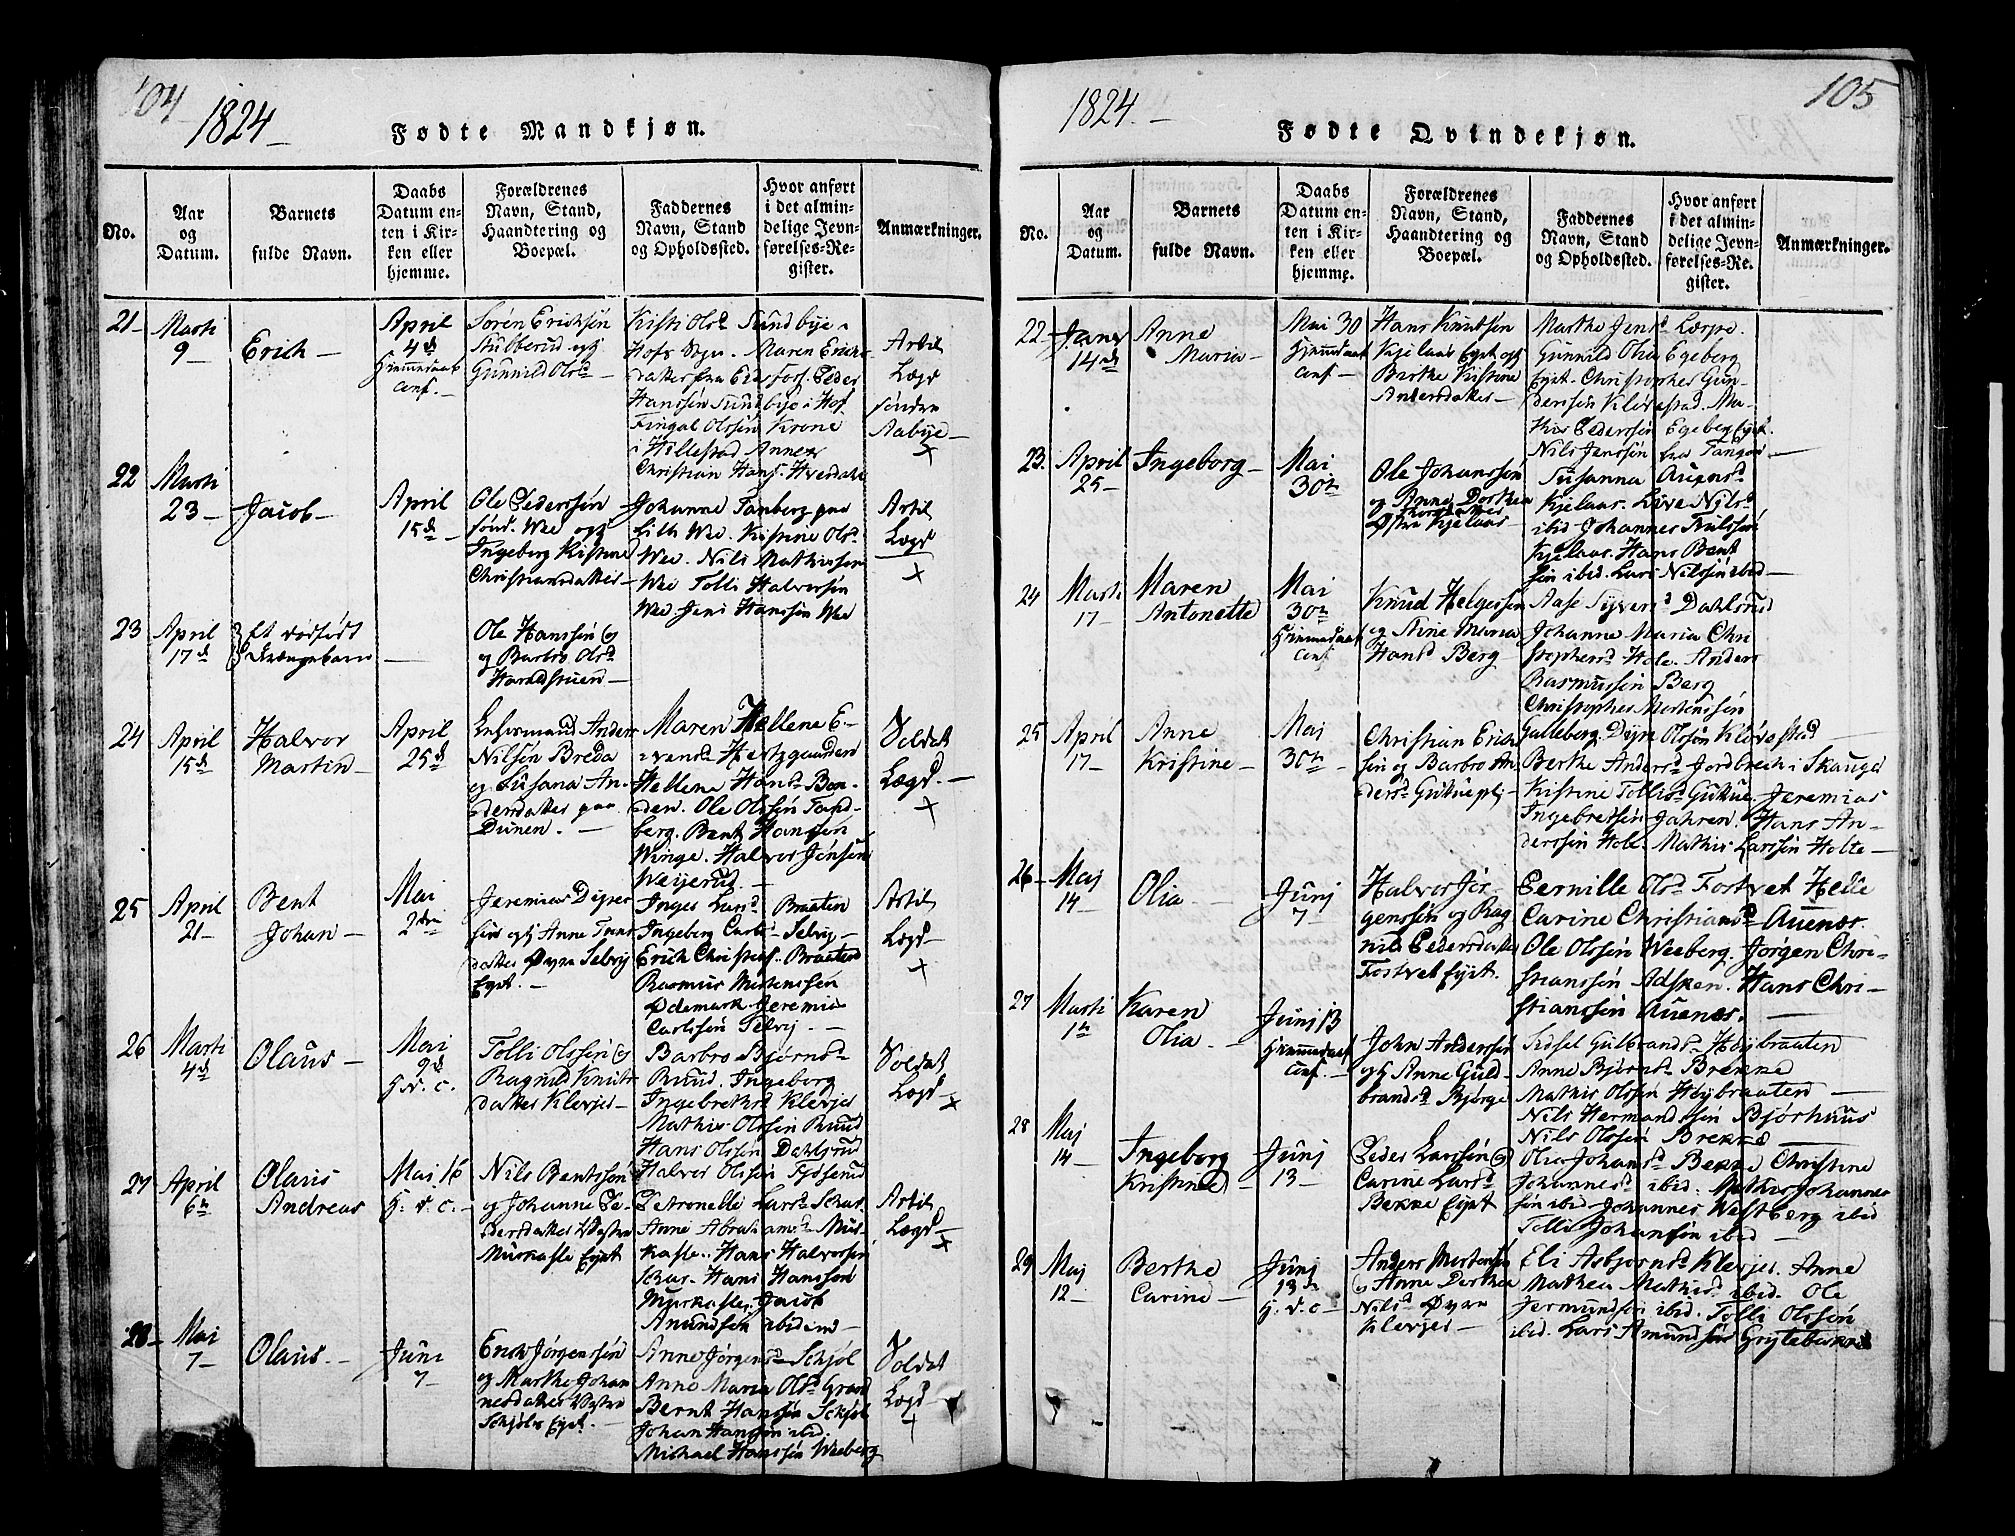 104
1824
Fødte Mandkjøn.
No.
Aar
og
Datum.
Barnets
fulde Navn.
Daabs
Datum en-
ten i Kir-
ken eller
hjemme.
Forældrenes
Navn, Stand,
Haandtering og
Boepæl.
Faddernes
Navn, Stand
og Opholdssted.
Hvor anført
i det almin-
delige Jevn-
førelses-Re-
gister.
Anmærkninger.
21
Marti
9
Erich
April
4d
Hjemmedøbt
conf.
Sören Ericksön
Stubberud og
Gunnild Olsd
Kisti Olsd Sundbye i
Hofs Sogn. Maren Erichs
datter fra Eidsfos. Peder
Hanssön Sundbye i Hof
Fingal Olssön Krone
i Hillestad Annex
Christian Hans. Hvesdale
Artil
Lægd
söndre
Aabye
22
Marti
23
Jacob
April
15d
Ole Pederssön
sönd. Wee og
Ingeborg Kistine
Christiansdatter
Johanne Tanberg paa
Lith Wee. Kistine Olsd
Wee. Nils Mathissen
Wee Tolli Halversön
Wee Jens Hanssön Wee
Artil
Lægd
23
April
17d
Et dödfödt
Drængebarn
Ole Hanssön
og Barbro Olsd
Haraldstuen
24
April
15d
Halvor
Martin
April
25d
Lehnsmand Anders
Nilsön Breda
og Susana An-
dersdatter paa
Dunen.
Maren Hellene E-
vensd Hertzgaarden
Hellene Hansd Bon-
den. Ole Olssön Tand-
berg. Bent Hanssön
Winge. Halvor Jensön
Weijerud.
Soldat
Lægd.
25
April
21
Bent
Johan
Mai
2den
Jeremias Dyres
sön og Anne Truls
datter Øvre Selvig
Eyet.
Inger Larsd Braaten
Ingeborg Carls. Selvig
Erich Christens. Braaten
Rasmus Mortenssön
Ødemark Jeremias
Carlssön Selvij.
Artil
Lægd
26
Marti
4d
Olaus
Mai
9d
H. d. c.
Tolli Olssön og
Ragnild Knuts
datter Klevjer
Barbro Bjørnsd
Ruud. Ingeborg
Ingebrethsd Klevjer
Mathis Olssön Ruud
Hans Olssön Dahlsrud
Halvor Olssön Fjöserud
Soldat
Lægd
27
April
6te
Olaus
Andreas
Mai 16
H. d. c.
Nils Bentssön
og Johanne Pe-
dersdatter Vestre
Murkasle Eyet
Petronelle Larsd Schar
Anne Abrahamsd Mur-
kasle. Hans Halverssön
Schar. Hans Hanssön
Murkasle. Jacob
Amundsön ibidem
Artil
Lægd
28
Mai
7
Olaus.
Juni
7
Erick Jørgenssön
og Marthe Johan
nesdatter Vestre
Schjöls Eyet.
Anne Jörgensd Schjöl
Anne Maria Olsd Grand
Bernt Hanssön Sckjöl
Johan Hanssön ibid.
Michael Hanssön Weeberg
Soldat
Lægd
105
1824.
Fødte Qvindekjøn.
No.
Aar
og
Datum.
Barnets
fulde Navn.
Daabs
Datum en-
ten i Kir-
ken eller
hjemme.
Forældrenes
Navn, Stand,
Haandtering og
Boepæl.
Faddernes
Navn, Stand
og Opholdssted.
Hvor anført
i det almin-
delige Jevn-
førelses-Re-
gister.
Anmærkninger.
22
Janv
14de
Anne
Maria
Mai 30
Hjemmedøbt
conf
Hans Knutsön
Kjelaas Eyet og
Berthe Kistine
Andersdatter
Marthe Jensd Lærpe.
Gunnild Olsd Egeberg
Eyet. Christopher Gun-
derssön Klövestad. Ma-
this Pederssön Egeberg Eyet.
Nils Jenssön fra Tangen
23.
April
25
Ingeborg
Mai
30te
Ole Johanssön
og Anne Dorthea
Østre Kjelaas
Susanna Auensd
Kjelaas. Live Nilsd
ibid Johannes Trulssön
Kjelaas. Hans Bent
sön ibid. Lars Nilssön ibid
24
Marti
17
Maren
Antonette
Mai
30te
Hjemmedøbt
conf
Knud Helgessön
og Stine Maria
Hansd Berg
Aase Syversd Dahlsrud
Johanne Maria Chri
stophersd Hole. Anders
Rasmussön Berg
Christopher Mortenssön
Gulleberg. Dyre Olssön Klövestad
25
April
17
Anne
Kristine
Mai
30te
Christian Erich
sön og Barbro An
dersd Gutuepl.
Berthe Andersd Jordbrech i Skauger
Kistine Tollisd Gutue. Jeremias
Ingebretsön Jahren. Hans An-
derssön Hole. Mathis Larssön Holte
26
Maj
14
Olia
Junj
7
Halvor Jör-
genssön og Rag
nild Pedersdatter
Fostvet Eyet.
Pernille Olsd Fostvet Helle
Carine Christiansd Auenæs.
Ole Olssön Weeberg. Jørgen Chri-
stianssön Adsken. Hans Chri-
stianssön Auenæs.
27
Marti
1te
Karen
Olia.
Junj 13
Hjemmedøbt
conf.
John Anderssön
og Anne Guld-
brandsd Bjørge
Sidsel Gulbrandsd Höybraaten
Anne Bjørnsd Brekke
Mathis Olssön Höybraaten
Nils Hermandssön Bjørhuus
Nils Olssön Brekke
28
Maj
14
Ingeborg
Kristine
Junj
13
Peder Larssön og
Carine Larsd
Bekke Eyet
Olia Johansd Bekke Christine
Johannesd ibid. Mathis Johannes
sön ibid Johannes Westberg ibid
Tolli Johanssön ibid
29
Maj
12
Berthe
Carine
Junj
13de
H. d. c.
Anders Mortensön
og Anne Dorthea
Nilsd Øvre
Klevjer
Eli Asbjornsd Klevjer. Anne
Mathea Mathisd ibid. Ole
Jermundssön ibid. Tolli Olssön
ibid. Lars Amundsön Gryteberke